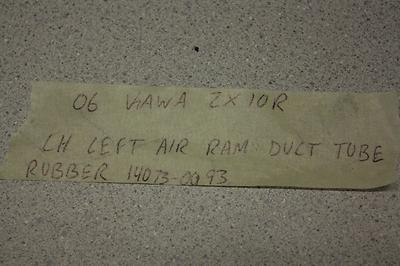 06 KAWA ZX10R
LH LEFT AIR RAM DUCT TUBE
RUBBER 14073-0093